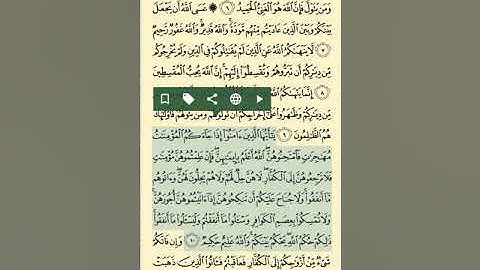 وَمَن يَتَوَلَّ فَإِنَّ ٱللَّهَ هُوَ ٱلْغَنِىُّ ٱلْحَمِيدُ ٦ ۞ عَسَى ٱللَّهُ أَن يَجْعَلَ
بَيْنَكُمْ وَبَيْنَ ٱلَّذِينَ عَادَيْتُم مِّنْهُم مَّوَدَّةً ۚ وَٱللَّهُ قَدِيرٌ ۚ وَٱللَّهُ غَفُورٌ رَّحِيمٌ
٧ لَّا يَنْهَىٰكُمُ ٱللَّهُ عَنِ ٱلَّذِينَ لَمْ يُقَٰتِلُوكُمْ فِى ٱلدِّينِ وَلَمْ يُخْرِجُوكُم
مِّن دِيَٰرِكُمْ أَن تَبَرُّوهُمْ وَتُقْسِطُوٓا۟ إِلَيْهِمْ ۚ إِنَّ ٱللَّهَ يُحِبُّ ٱلْمُقْسِطِينَ
٨ إِنَّمَا يَنْهَىٰكُمُ ٱللَّهُ
مِّن دِيَٰرِكُمْ وَظَٰهَرُوا۟ عَلَىٰٓ إِخْرَاجِكُمْ أَن تَوَلَّوْهُمْ ۚ وَمَن يَتَوَلَّهُمْ فَأُو۟لَٰٓئِكَ
هُمُ ٱلظَّٰلِمُونَ ٩ يَٰٓأَيُّهَا ٱلَّذِينَ ءَامَنُوٓا۟ إِذَا جَآءَكُمُ ٱلْمُؤْمِنَٰتُ
مُهَٰجِرَٰتٍ فَٱمْتَحِنُوهُنَّ ۖ ٱللَّهُ أَعْلَمُ بِإِيمَٰنِهِنَّ ۖ فَإِنْ عَلِمْتُمُوهُنَّ مُؤْمِنَٰتٍ
فَلَا تَرْجِعُوهُنَّ إِلَى ٱلْكُفَّارِ ۖ لَا هُنَّ حِلٌّ لَّهُمْ وَلَا هُمْ يَحِلُّونَ لَهُنَّ ۖ وَءَاتُوهُم
مَّآ أَنفَقُوا۟ ۚ وَلَا جُنَاحَ عَلَيْكُمْ أَن تَنكِحُوهُنَّ إِذَآ ءَاتَيْتُمُوهُنَّ أُجُورَهُنَّ ۚ
وَلَا تُمْسِكُوا۟ بِعِصَمِ ٱلْكَوَافِرِ وَسْـَٔلُوا۟ مَآ أَنفَقْتُمْ وَلْيَسْـَٔلُوا۟ مَآ أَنفَقُوا۟ ۚ
ذَٰلِكُمْ حُكْمُ ٱللَّهِ ۖ يَحْكُمُ بَيْنَكُمْ ۚ وَٱللَّهُ عَلِيمٌ حَكِيمٌ ١٠ وَإِن فَاتَكُمْ
شَىْءٌ مِّنْ أَزْوَٰجِكُمْ إِلَى ٱلْكُفَّارِ فَعَاقَبْتُمْ فَـَٔاتُوا۟ ٱلَّذِينَ ذَهَبَتْ